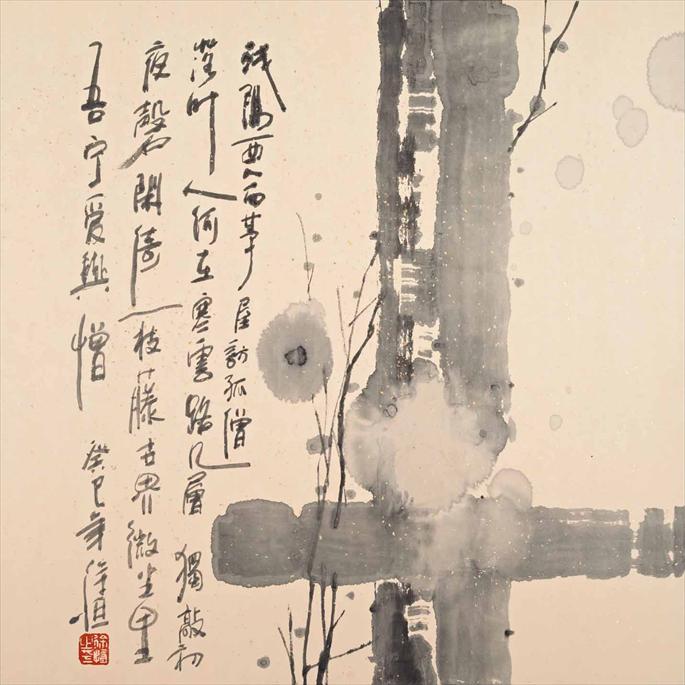 残陽西入崦茅屋訪孤僧
落叶人何在寒雲路几層獨敲初
夜磬閑倚一枝藤世界微尘里
吾宁爱與憎 癸巳年徐恒